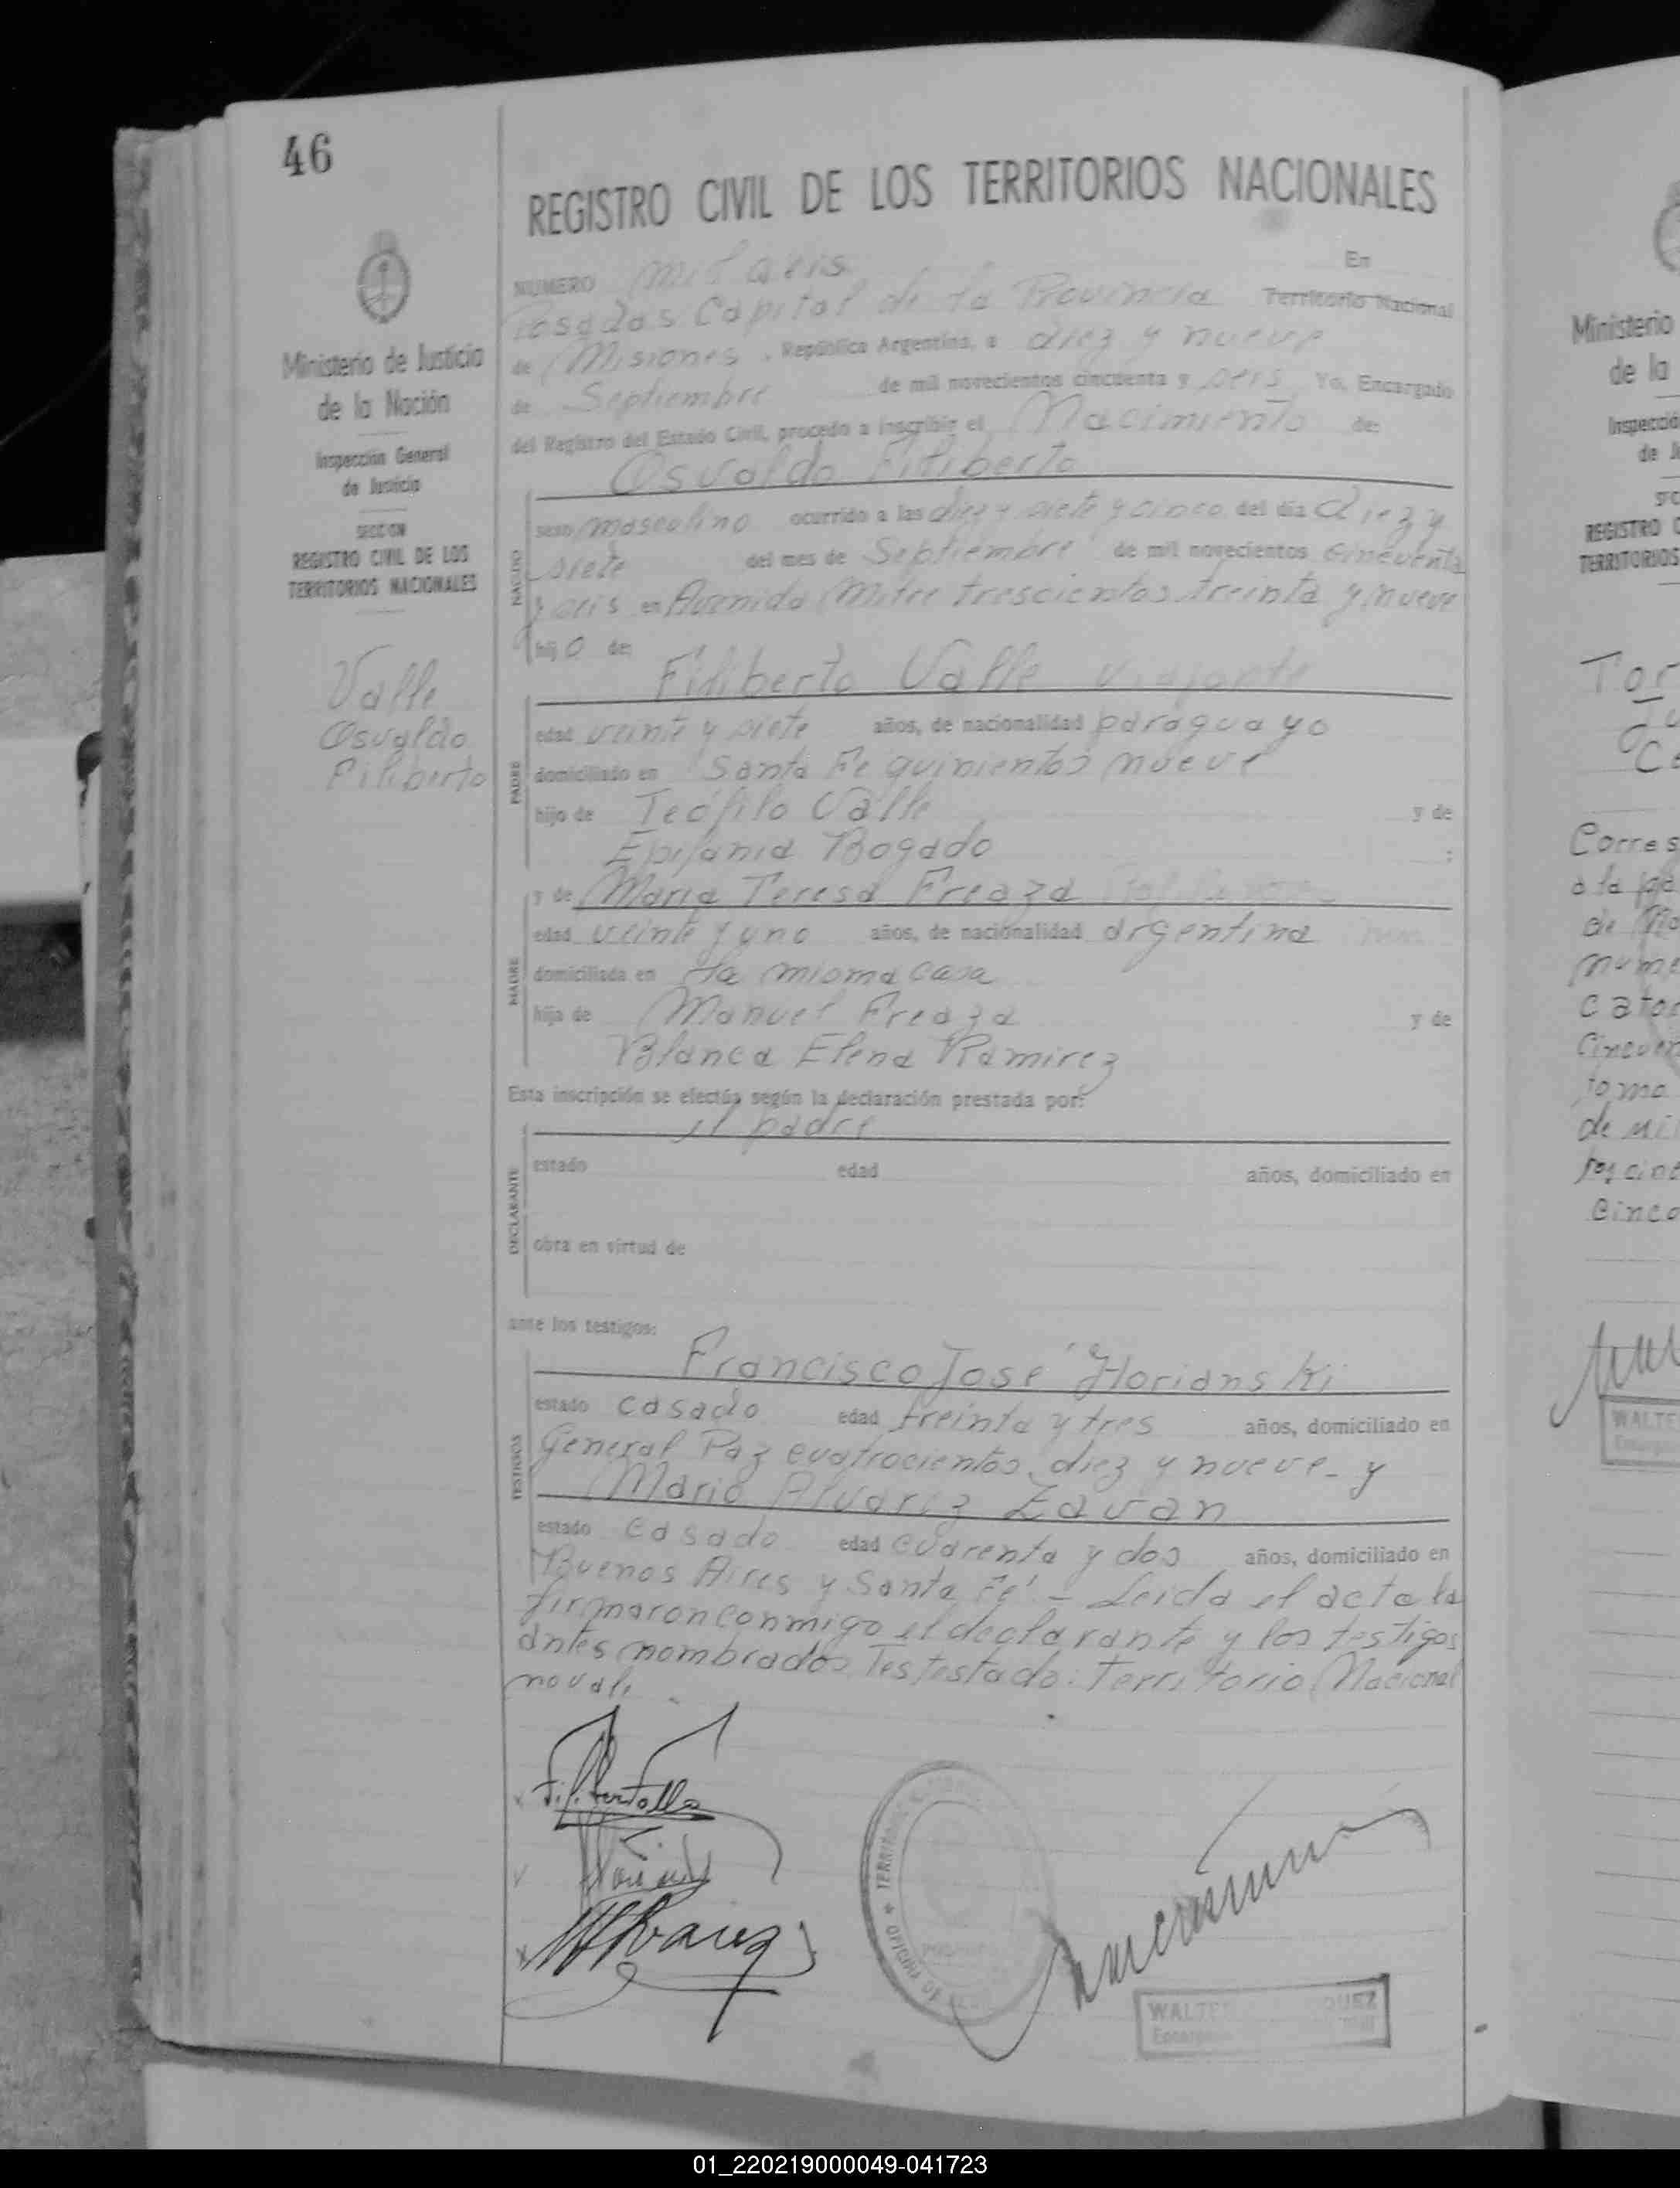 46
REGISTRO CIVIL DE LOS TERRITORIOS NACIONALES
NUMERO mil seis En
Posadas Capital de la Provincia Territorio Nacional
de Misiones, República Argentina, a diez y nueve
de Septiembre de mil novecientos cincuenta y seis Yo, Encargado
del Registro del Estado Civil, procedo a inscribir el Nacimiento de:
Osvaldo Filiberto
Ministerio de Justicia
de la Nación
Inspección General
de Justicia
SECCION
REGISTRO CIVIL DE LOS
TERRITORIOS NACIONALES
Valle
Osvaldo
Filiberto
NACIDO
sexo masculino ocurrido a las diez y siete y cinco del día diez y
siete del mes de Septiembre de mil novecientos cincuenta
y seis en Avenida Mitre trescientos treinta y nueve
hijo de:
Filiberto Valle viajante
PADRE
edad veinte y siete años, de nacionalidad paraguayo
domiciliado en Santa Fe quinientos nueve
hijo de Teófilo Valle y de
Epifania Bogado :
y de Maria Teresa Freaza
MADRE
edad veinte y uno años, de nacionalidad argentina
domiciliada en la misma casa
hija de Manuel Freaza y de
Blanca Elena Ramirez
Esta inscripción se efectúa según la declaración prestada por:
el padre
DECLARANTE
estado edad años, domiciliado en
obra en virtud de
ante los testigos:
Francisco José Florianski
TESTIGOS
estado casado edad treinta y tres años, domiciliado en
General Paz cuatrocientos diez y nueve - y
Mario Alvarez Zavan
estado casado edad cuarenta y dos años, domiciliado en
Buenos Aires y Santa Fé - Leida el acta la
firmaron conmigo el declarante y los testigos
antes nombrados Testestado: Territorio Nacional
no vale
OFICINA DE
WALTE QUEZ
Ministerio
de la
REGISTRO
TERRITORIOS
Corres
a la
de
Cinco
WALTE
01_220219000049-041723